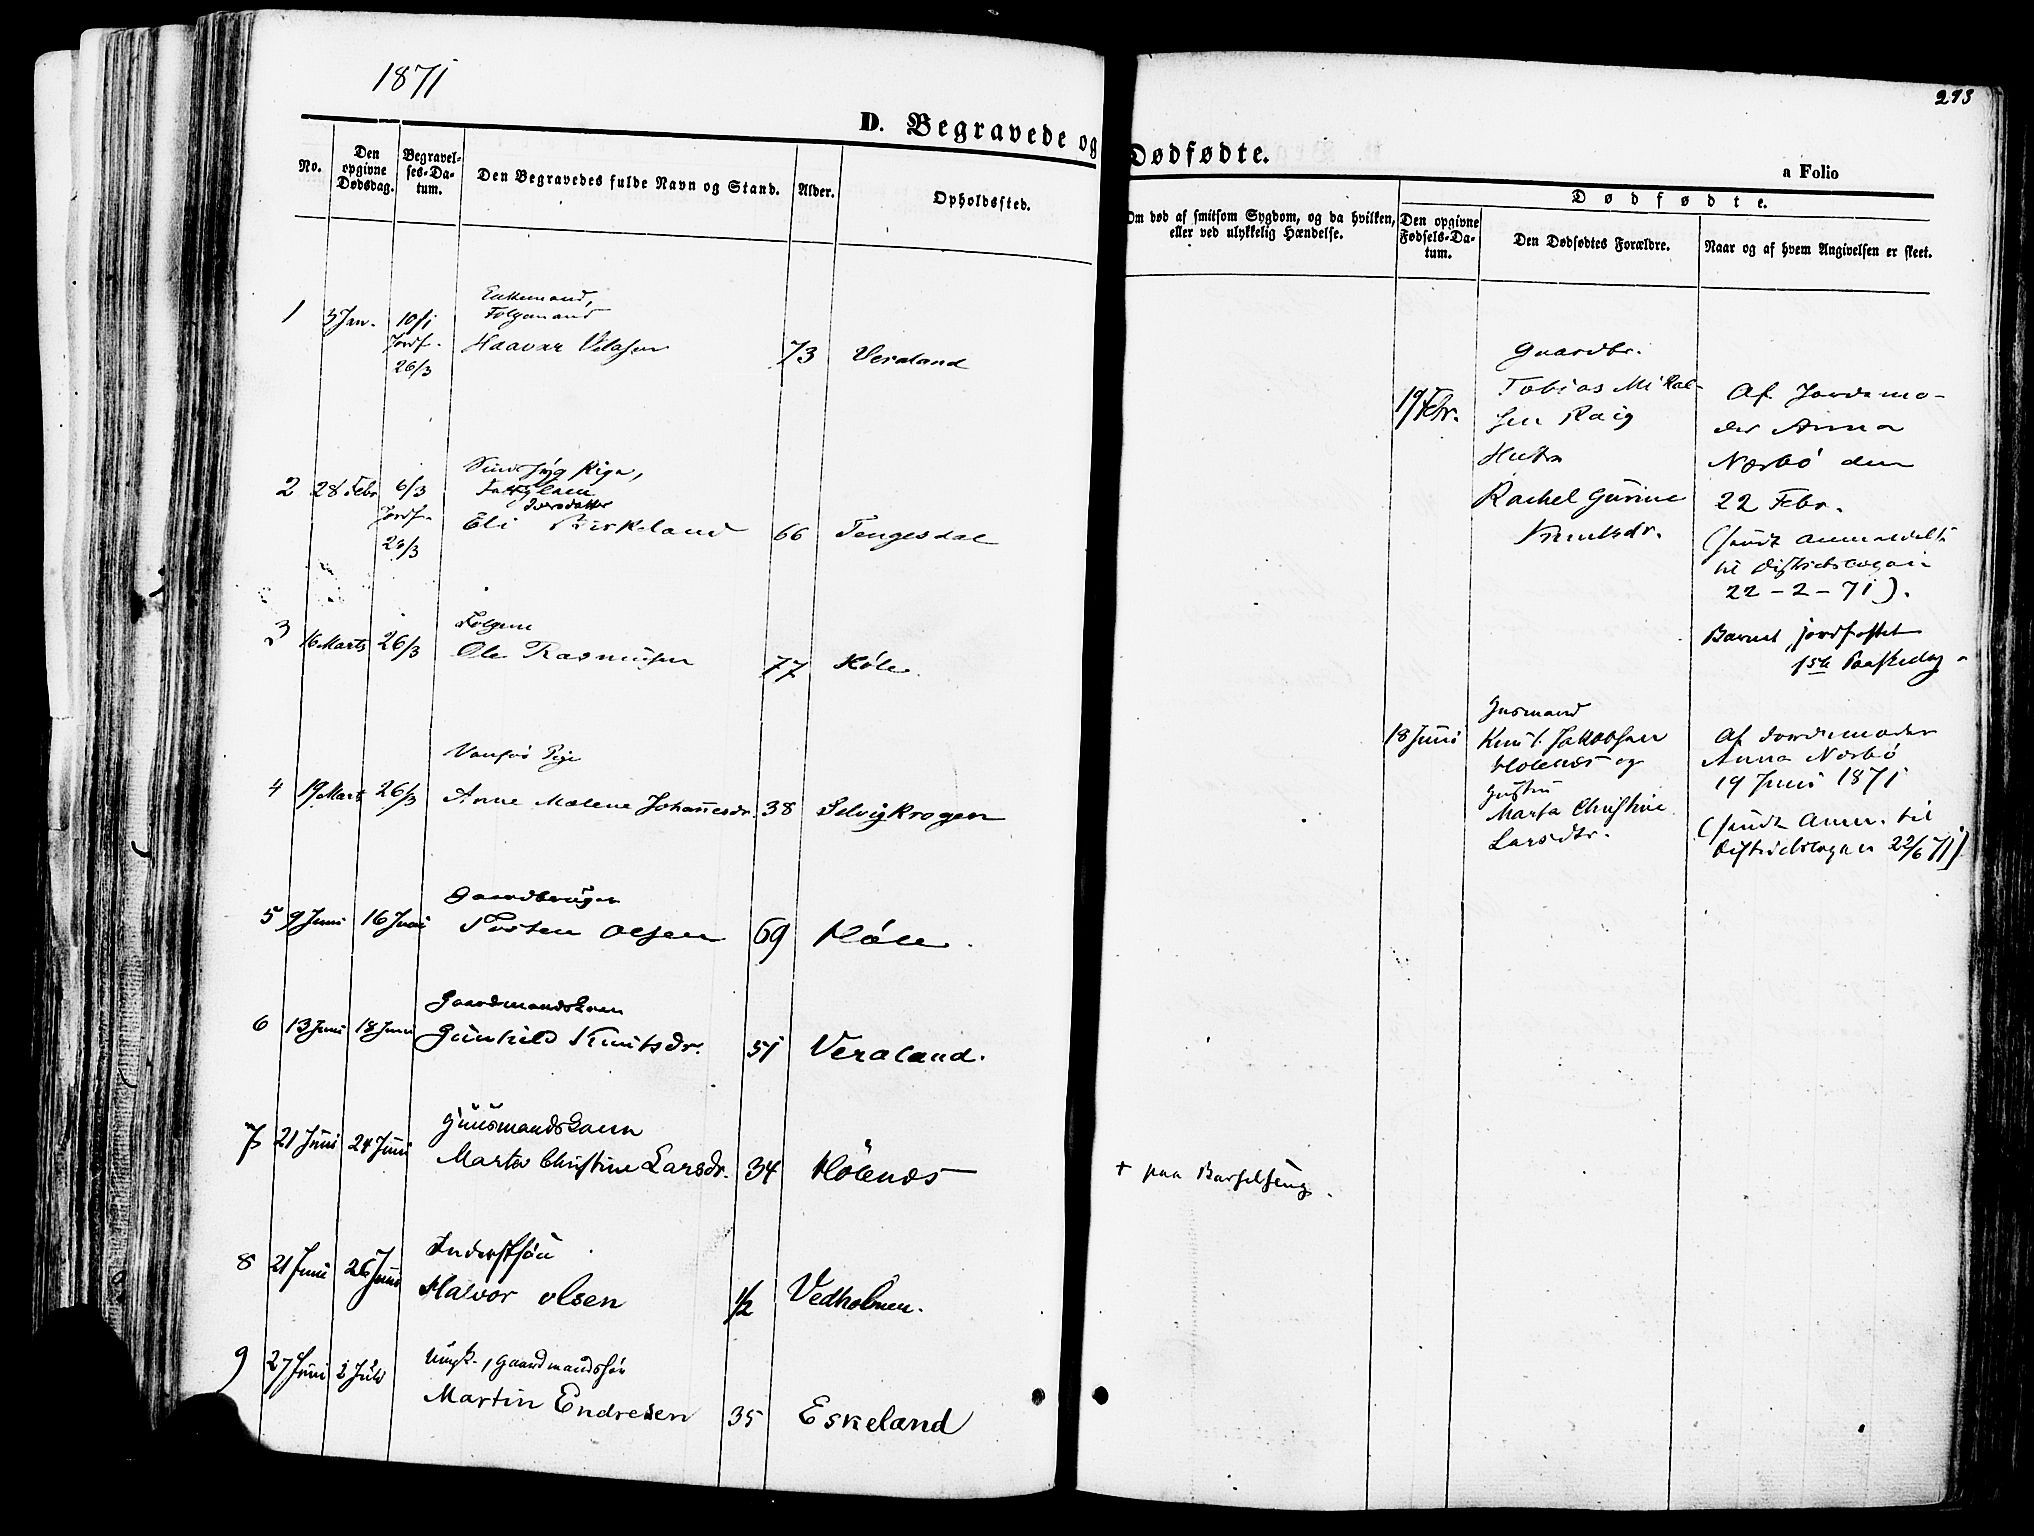 1871
293
D. Begravede og Dødfødte.
a Folio
No.
Den opgivne Dødsdag.
Begravelses-Datum.
Den Begravedes fulde Navn og Stand.
Alder.
Opholdssted.
Om død af smitsom Sygdom, og da hvilken, eller ved ulykkelig Hændelse.
Dødfødte.
Den opgivne Fødsels-Datum.
Den Dødfødtes Forældre.
Naar og af hvem Angivelsen er skeet.
Enkemand,
Folgemand
1 3 Jan. 10/1 Haavar 73 Veraland
Jordf.
26/3
Sindssyg Pige,
2 28 Febr 6/3
Iversdatter
Jordf. Eli Birkeland 66 Tengesdal
3 16 Marts 26/3 Ole Rasmussen 77 Höle.
Vanfør Pige
4 19 Marts 26/3 Anne Malene Johannesdr. 38 Selvigkrogen
Gaardbruger
5 9 Juni 16 Juni Torsten Olsen 69 Höle.
Gaardmandskone
6 13 Juni 18 Juni Gunhild Knutsdr. 51 Veraland.
Huusmandskone
7 21 Juni 24 Juni Marta Christine Larsdr. 34 Hölenæs
+ paa Barselseng.
Inderstsön
8 21 Juni 26 Juni Halvor Olsen 1/2 Vedholmen.
Ungk., Gaardmandssøn
9 27 Juni 2 Juli Martin Endresen 35 Eskeland
Gaardbr.
19 Febr.
Tobias Mikal-
sen Raig
Hustru
Rachel Gurine
Knutsdr.
Af Jordemo-
der Anna
Nærbö den
22 Febr.
(sendt Anmeldelse
til Distriktslægen
22-2-71).
Barnet jordfæstet
1ste Paaskedag
18 Juni
Husmand
Knut Jakobsen
Hölenæs og
Hustru
Marta Christine
Larsdtr.
Af Jordemoder
Anna Nærbö
19 Juni 1871
(sendt Anm. til
Distriktslægen 22/6 71)